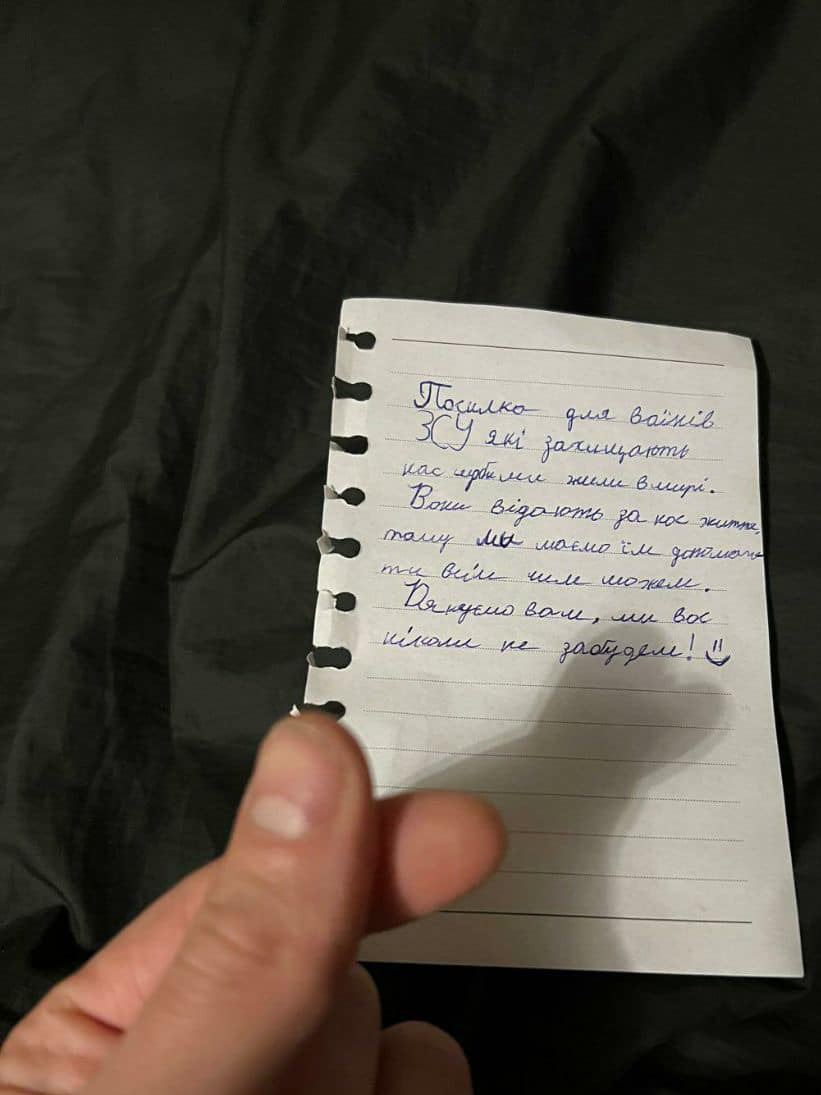 Посилка для воїнів
ЗСУ які захищають
нас щоби ми жили в мирі.
Вони відають за нас життя,
тому ми маємо їм допомага
ти всім чим можем.
Дякуємо вам, ми вас
ніколи не забудем!